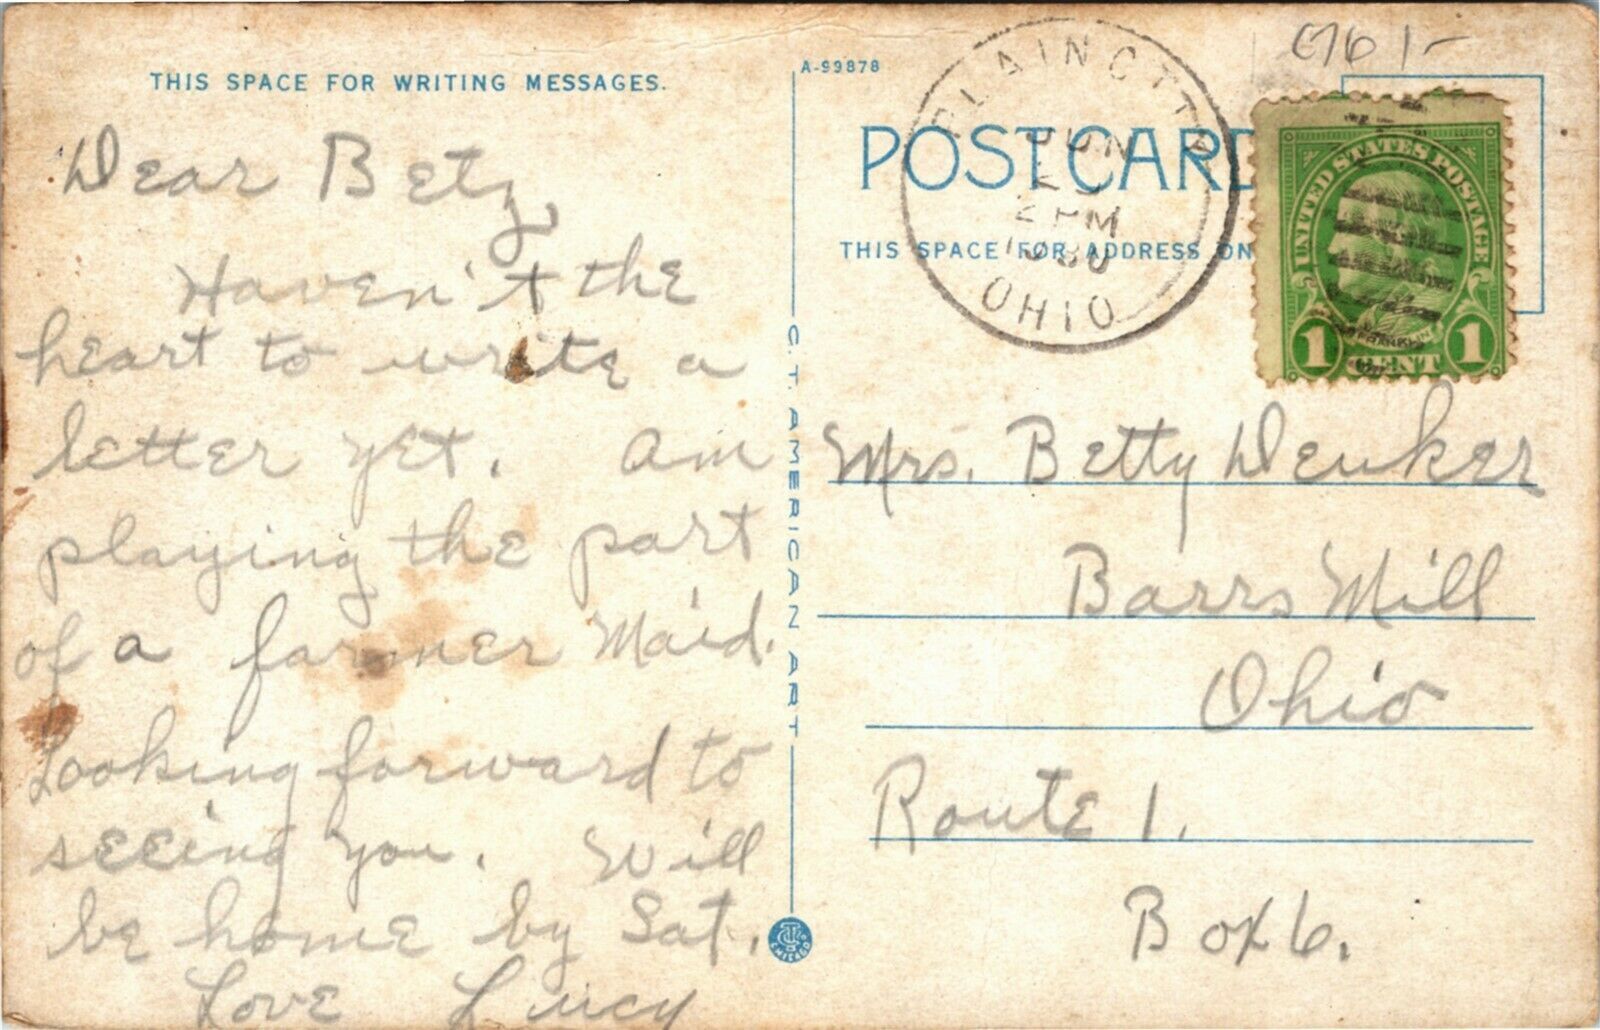 THIS SPACE FOR WRITING MESSAGES.
Dear Betz
Haven't the
heart to write a
letter yet. Am
playing the part
of a farmer Maid.
Looking forward to
seeing you. Will
be home by Sat.
Love Lucy
C. T. AMERICAN ART
CHICAGO
A-99878
POSTCARD
THIS SPACE FOR ADDRESS ON
PLAIN CITY
JUN
2 PM
1930
OHIO
UNITED STATES POSTAGE
FRANKLIN
1 CENT 1
Mrs. Betty Denker
Barrs Mill
Ohio
Route 1.
Box 6.